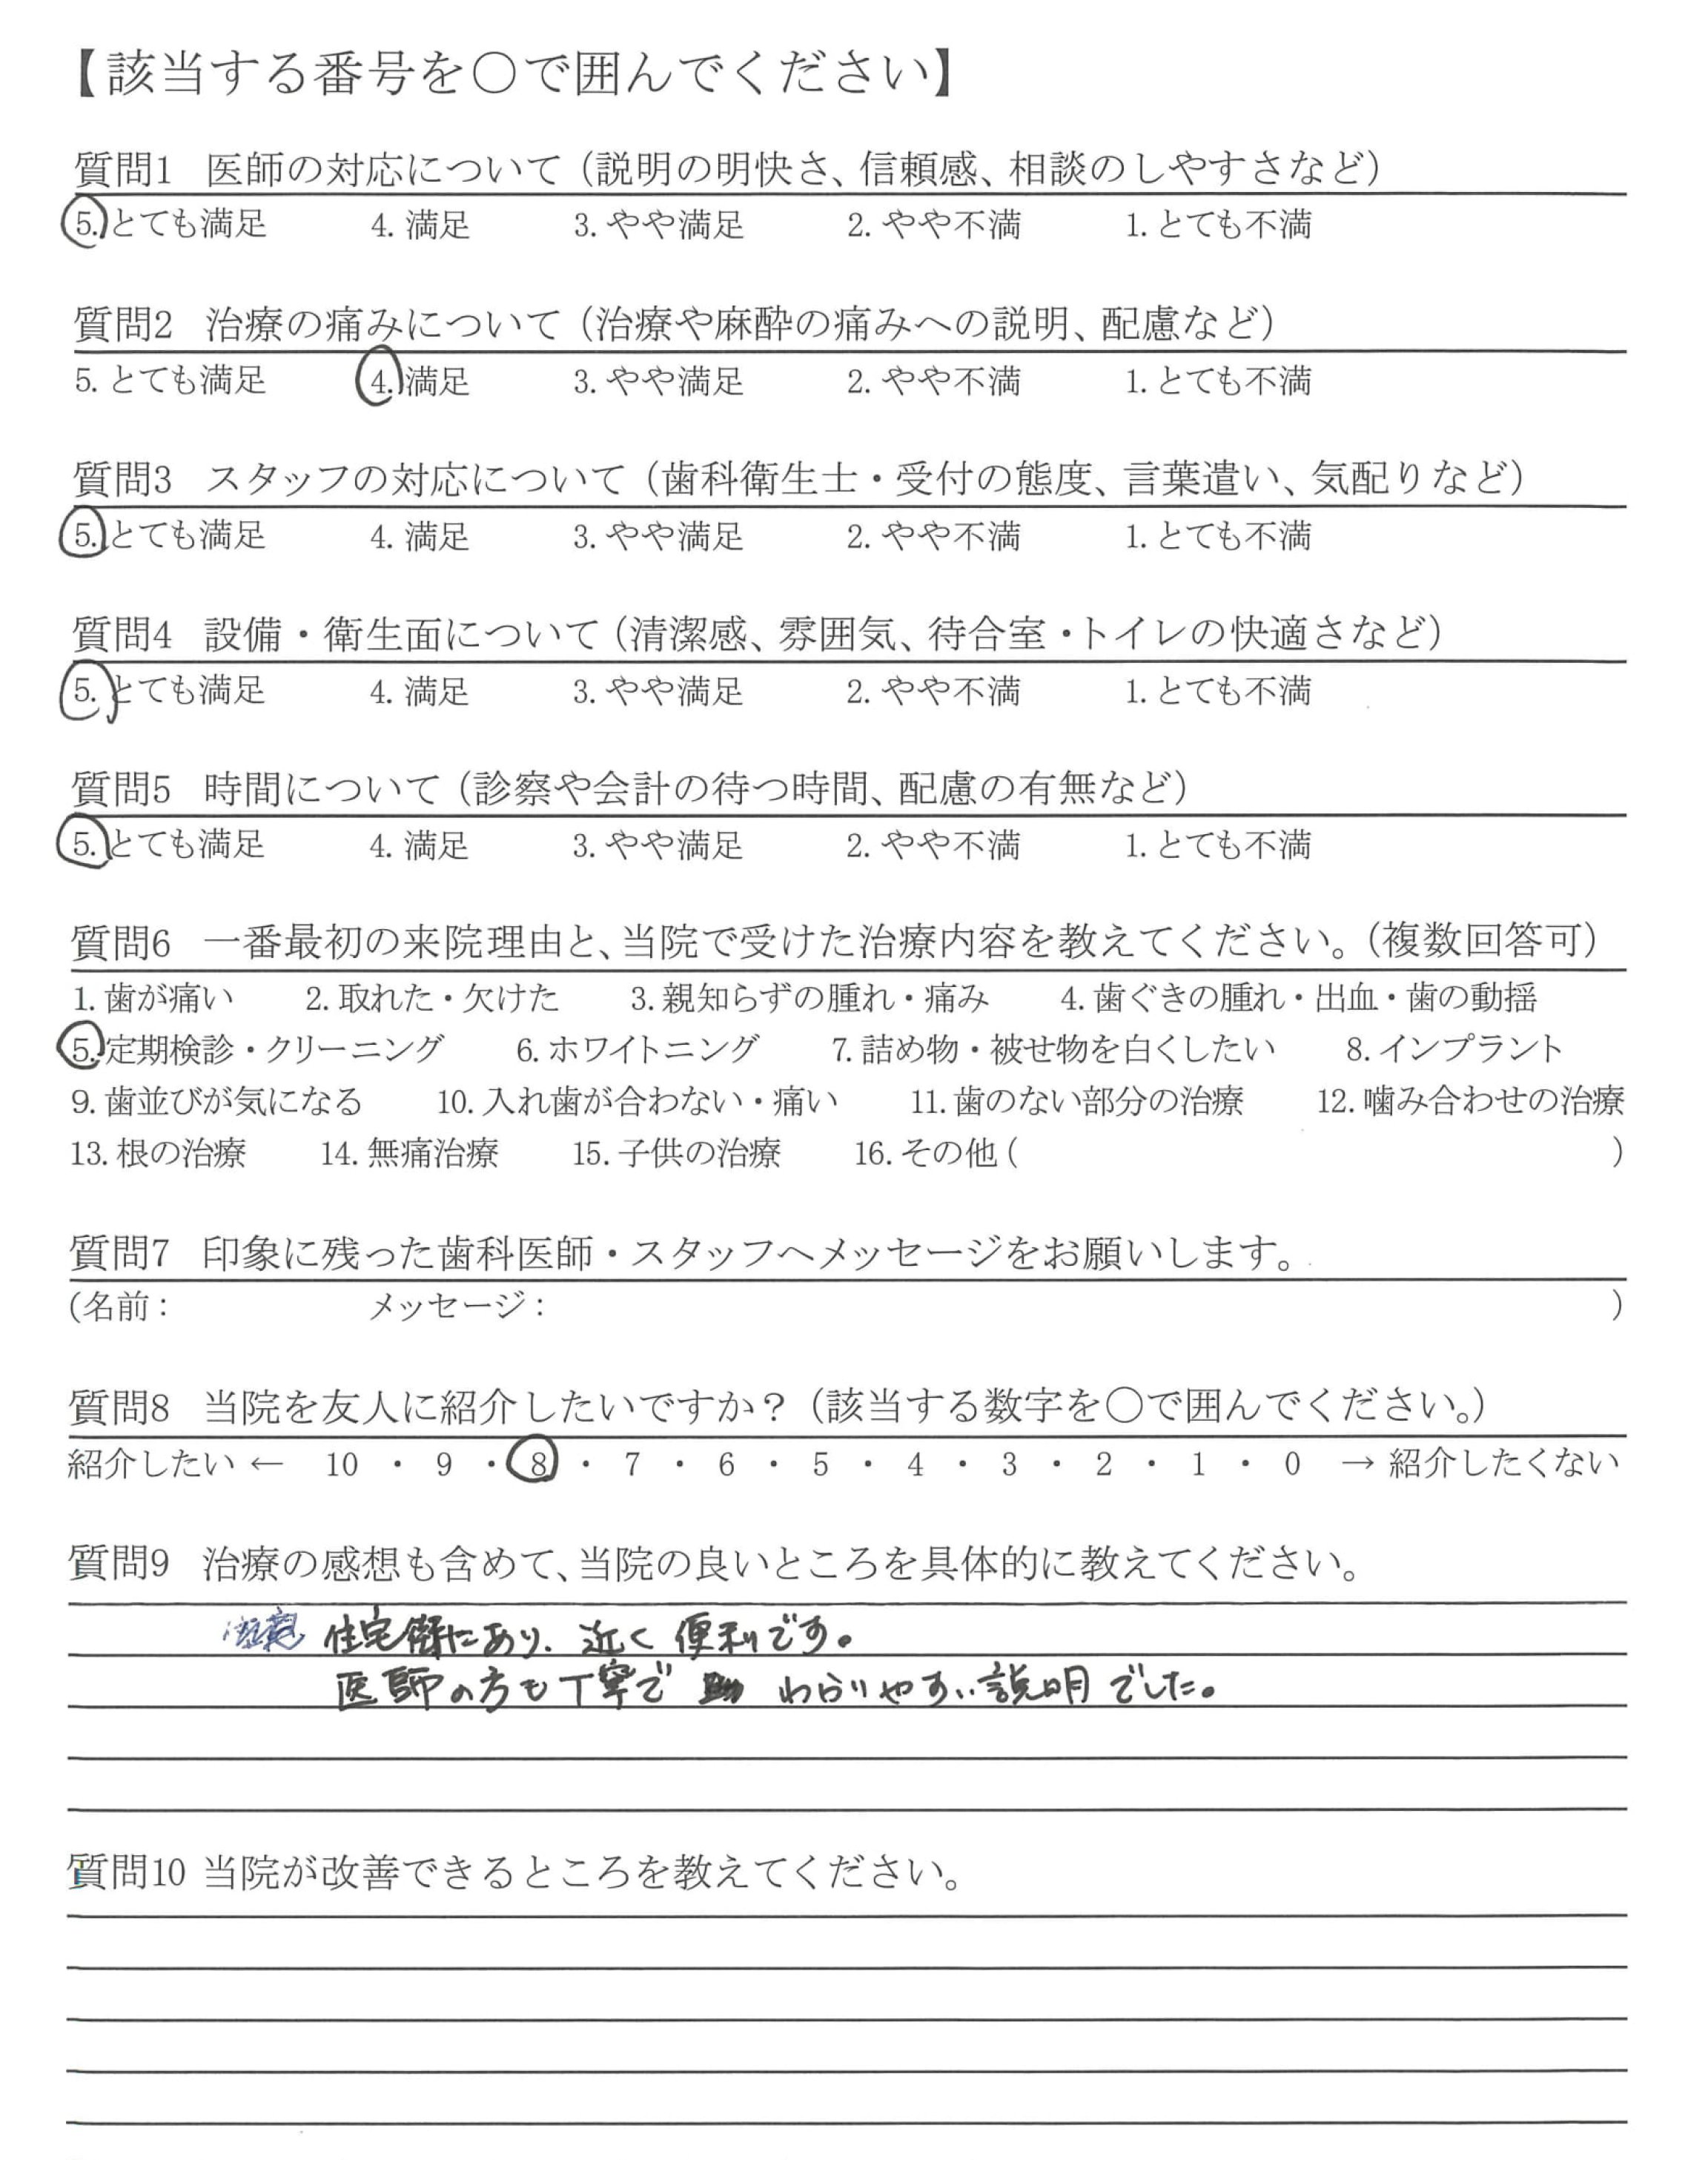 【該当する番号を○で囲んでください】
質問1 医師の対応について（説明の明快さ、信頼感、相談のしやすさなど）
5. とても満足 4. 満足 3. やや満足 2. やや不満 1. とても不満
質問2 治療の痛みについて（治療や麻酔の痛みへの説明、配慮など）
5. とても満足 4. 満足 3. やや満足 2. やや不満 1. とても不満
質問3 スタッフの対応について（歯科衛生士・受付の態度、言葉遣い、気配りなど）
5. とても満足 4. 満足 3. やや満足 2. やや不満 1. とても不満
質問4 設備・衛生面について（清潔感、雰囲気、待合室・トイレの快適さなど）
5. とても満足 4. 満足 3. やや満足 2. やや不満 1. とても不満
質問5 時間について（診察や会計の待つ時間、配慮の有無など）
5. とても満足 4. 満足 3. やや満足 2. やや不満 1. とても不満
質問6 一番最初の来院理由と、当院で受けた治療内容を教えてください。（複数回答可）
1. 歯が痛い 2. 取れた・欠けた 3. 親知らずの腫れ・痛み 4. 歯ぐきの腫れ・出血・歯の動揺
5. 定期検診・クリーニング 6. ホワイトニング 7. 詰め物・被せ物を白くしたい 8. インプラント
9. 歯並びが気になる 10. 入れ歯が合わない・痛い 11. 歯のない部分の治療 12. 噛み合わせの治療
13. 根の治療 14. 無痛治療 15. 子供の治療 16. その他 ( )
質問7 印象に残った歯科医師・スタッフへメッセージをお願いします。
(名前： メッセージ： )
質問8 当院を友人に紹介したいですか？（該当する数字を○で囲んでください。）
紹介したい ← 10 ・ 9 ・ 8 ・ 7 ・ 6 ・ 5 ・ 4 ・ 3 ・ 2 ・ 1 ・ 0 → 紹介したくない
質問9 治療の感想も含めて、当院の良いところを具体的に教えてください。
住宅街にあり、近く便利です。
医師の方も丁寧で わかりやすい説明でした。
質問10 当院が改善できるところを教えてください。